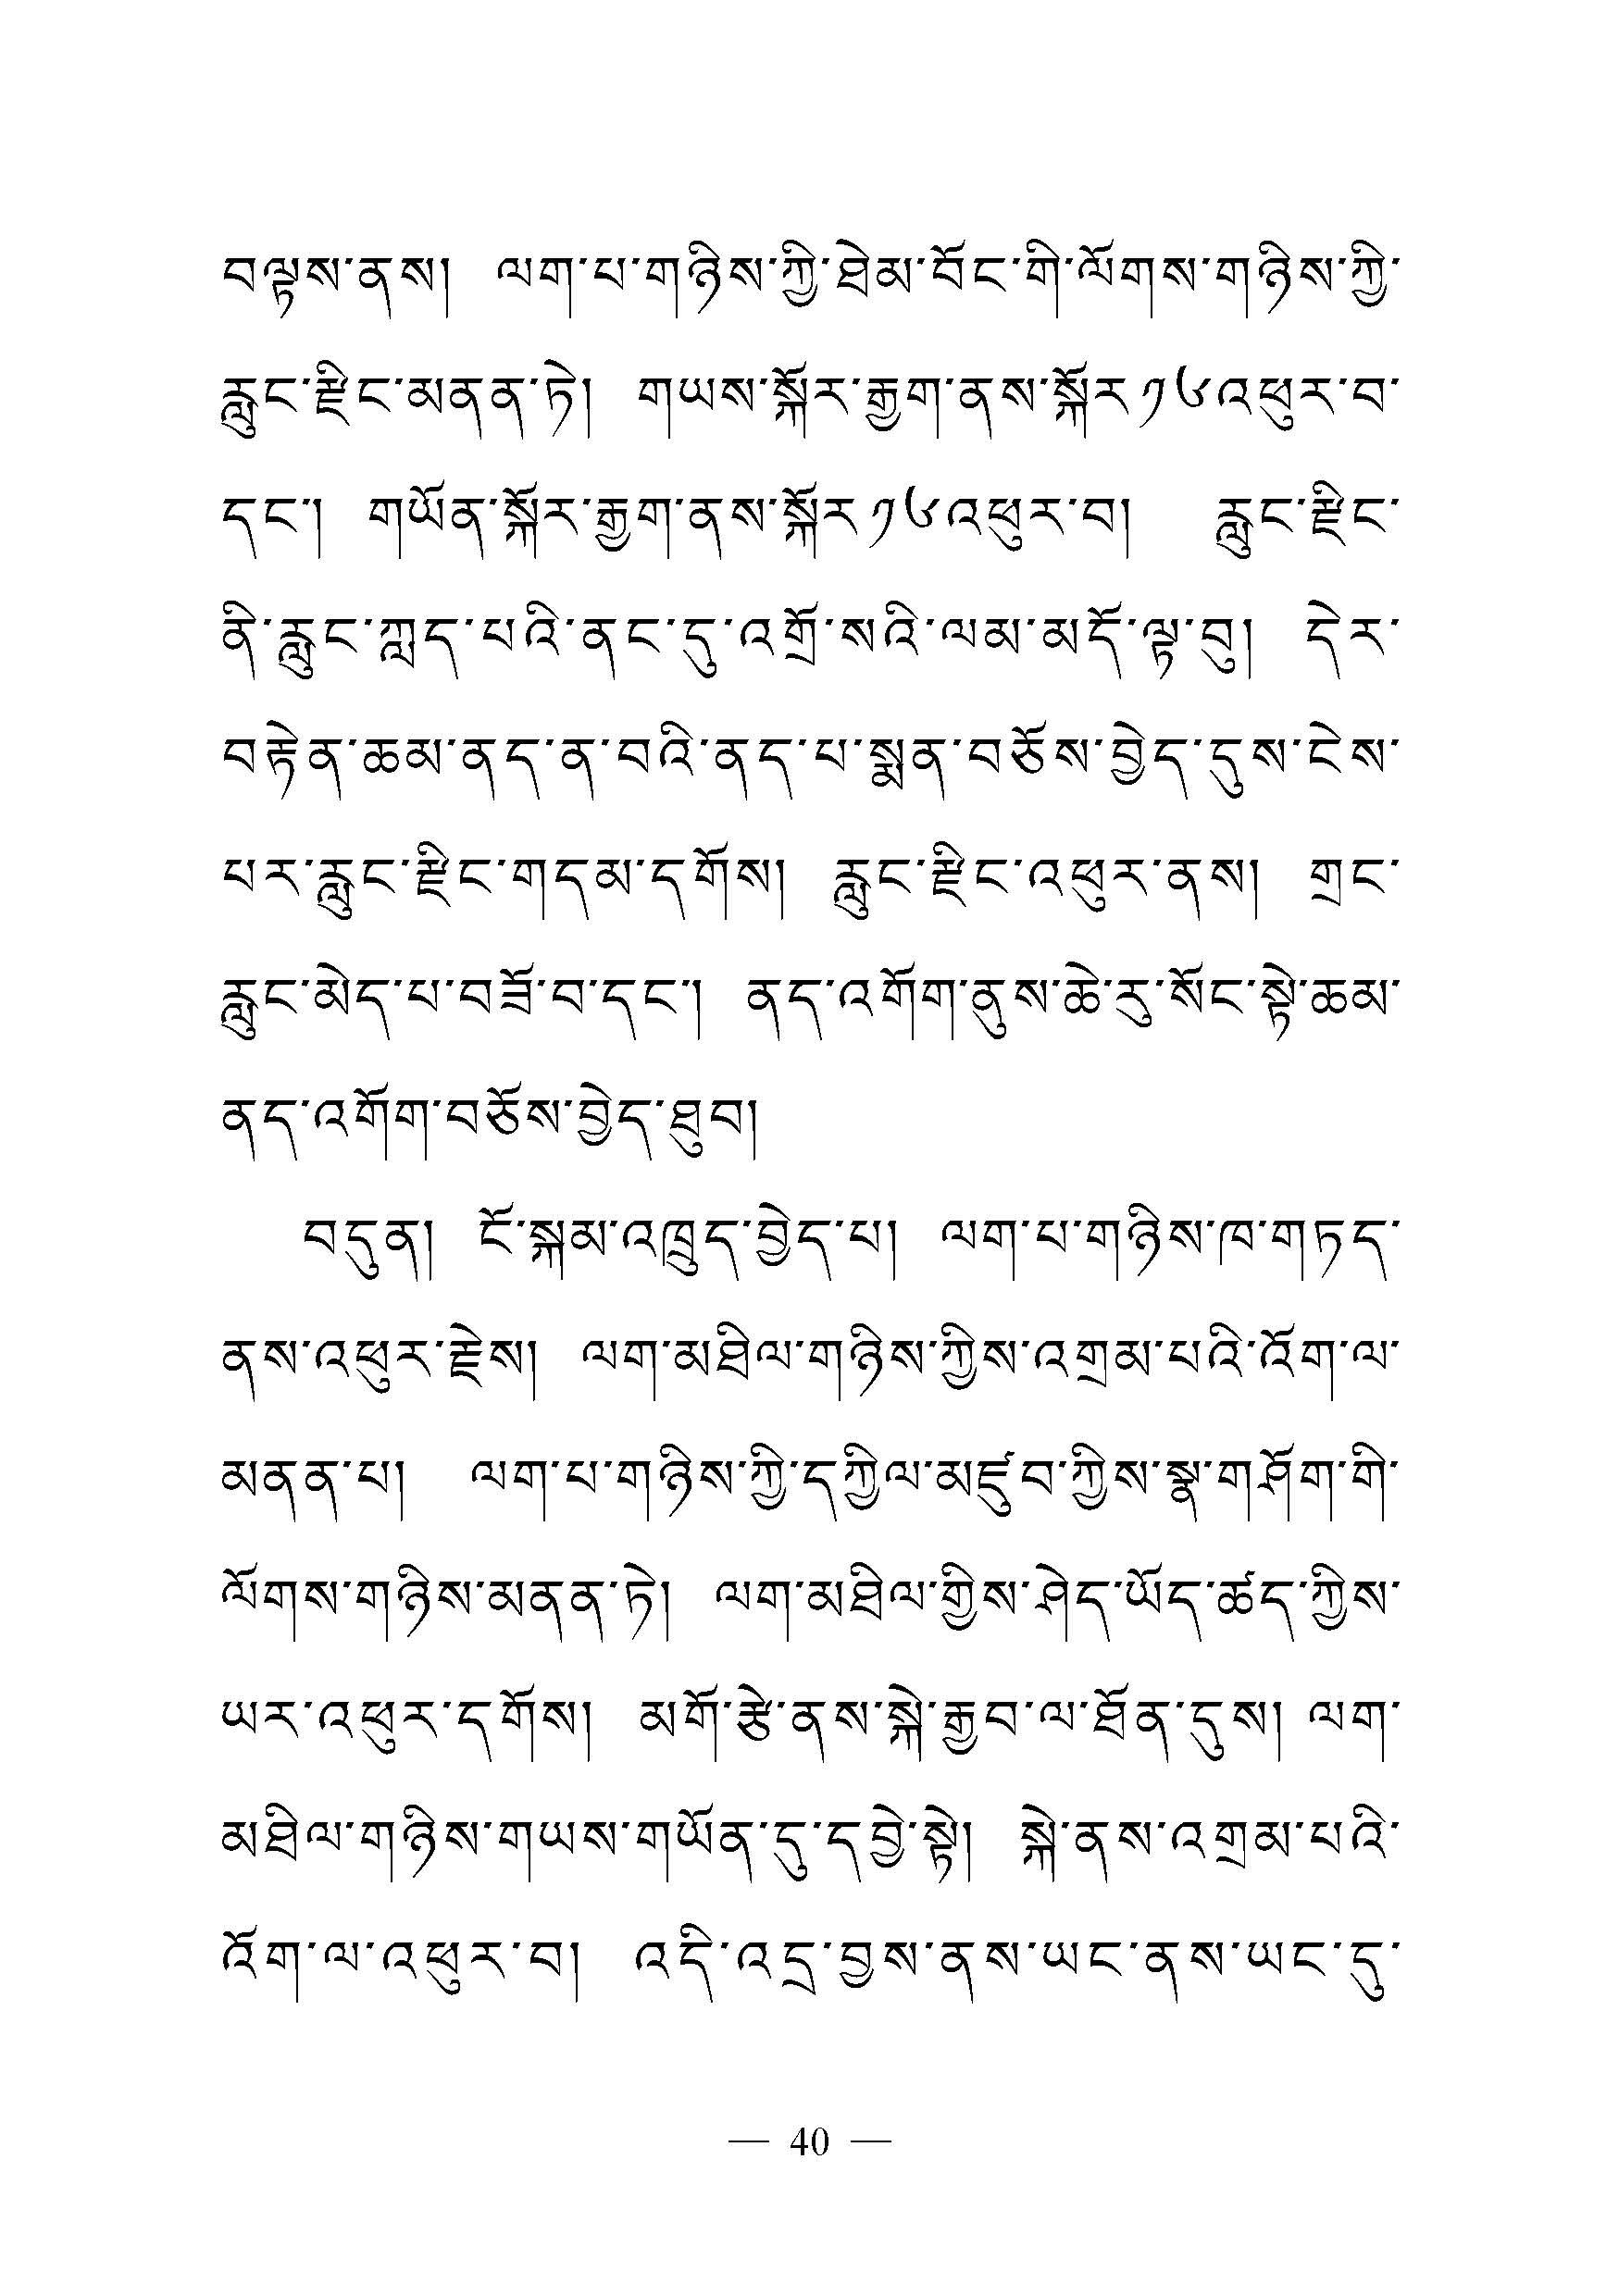 བལྟས་ནས། ལག་པ་གཉིས་ཀྱི་ཐེམ་བོང་གི་ལོགས་གཉིས་ཀྱི་
རླུང་རྫིང་མནན་ཏེ། གཡས་སྐོར་རྒྱག་ནས་སྐོར་༡༦འཕུར་བ་
དང་། གཡོན་སྐོར་རྒྱག་ནས་སྐོར་༡༦འཕུར་བ། རླུང་རྫིང་
ནི་རླུང་ཀླད་པའི་ནང་དུ་འགྲོ་སའི་ལམ་མདོ་ལྟ་བུ། དེར་
བརྟེན་ཆམ་ནད་ན་བའི་ནད་པ་སྨན་བཅོས་བྱེད་དུས་ངེས་
པར་རླུང་རྫིང་གདམ་དགོས། རླུང་རྫིང་འཕུར་ནས། གྲང་
རླུང་མེད་པ་བཟོ་བ་དང་། ནད་འགོག་ནུས་ཆེ་རུ་སོང་སྟེ་ཆམ་
ནད་འགོག་བཅོས་བྱེད་ཐུབ།
བདུན། ངོ་སྐམ་འཁྲུད་བྱེད་པ། ལག་པ་གཉིས་ཁ་གཏད་
ནས་འཕུར་རྗེས། ལག་མཐིལ་གཉིས་ཀྱིས་འགྲམ་པའི་འོག་ལ་
མནན་པ། ལག་པ་གཉིས་ཀྱི་དཀྱིལ་མཛུབ་ཀྱིས་སྣ་གཤོག་གི་
ལོགས་གཉིས་མནན་ཏེ། ལག་མཐིལ་གྱིས་ཤེད་ཡོད་ཚད་ཀྱིས་
ཡར་འཕུར་དགོས། མགོ་རྩེ་ནས་སྐེ་རྒྱབ་ལ་ཐོན་དུས། ལག་
མཐིལ་གཉིས་གཡས་གཡོན་དུ་དབྱེ་སྟེ། སྐེ་ནས་འགྲམ་པའི་
འོག་ལ་འཕུར་བ། འདི་འདྲ་བྱས་ནས་ཡང་ནས་ཡང་དུ་
— 40 —